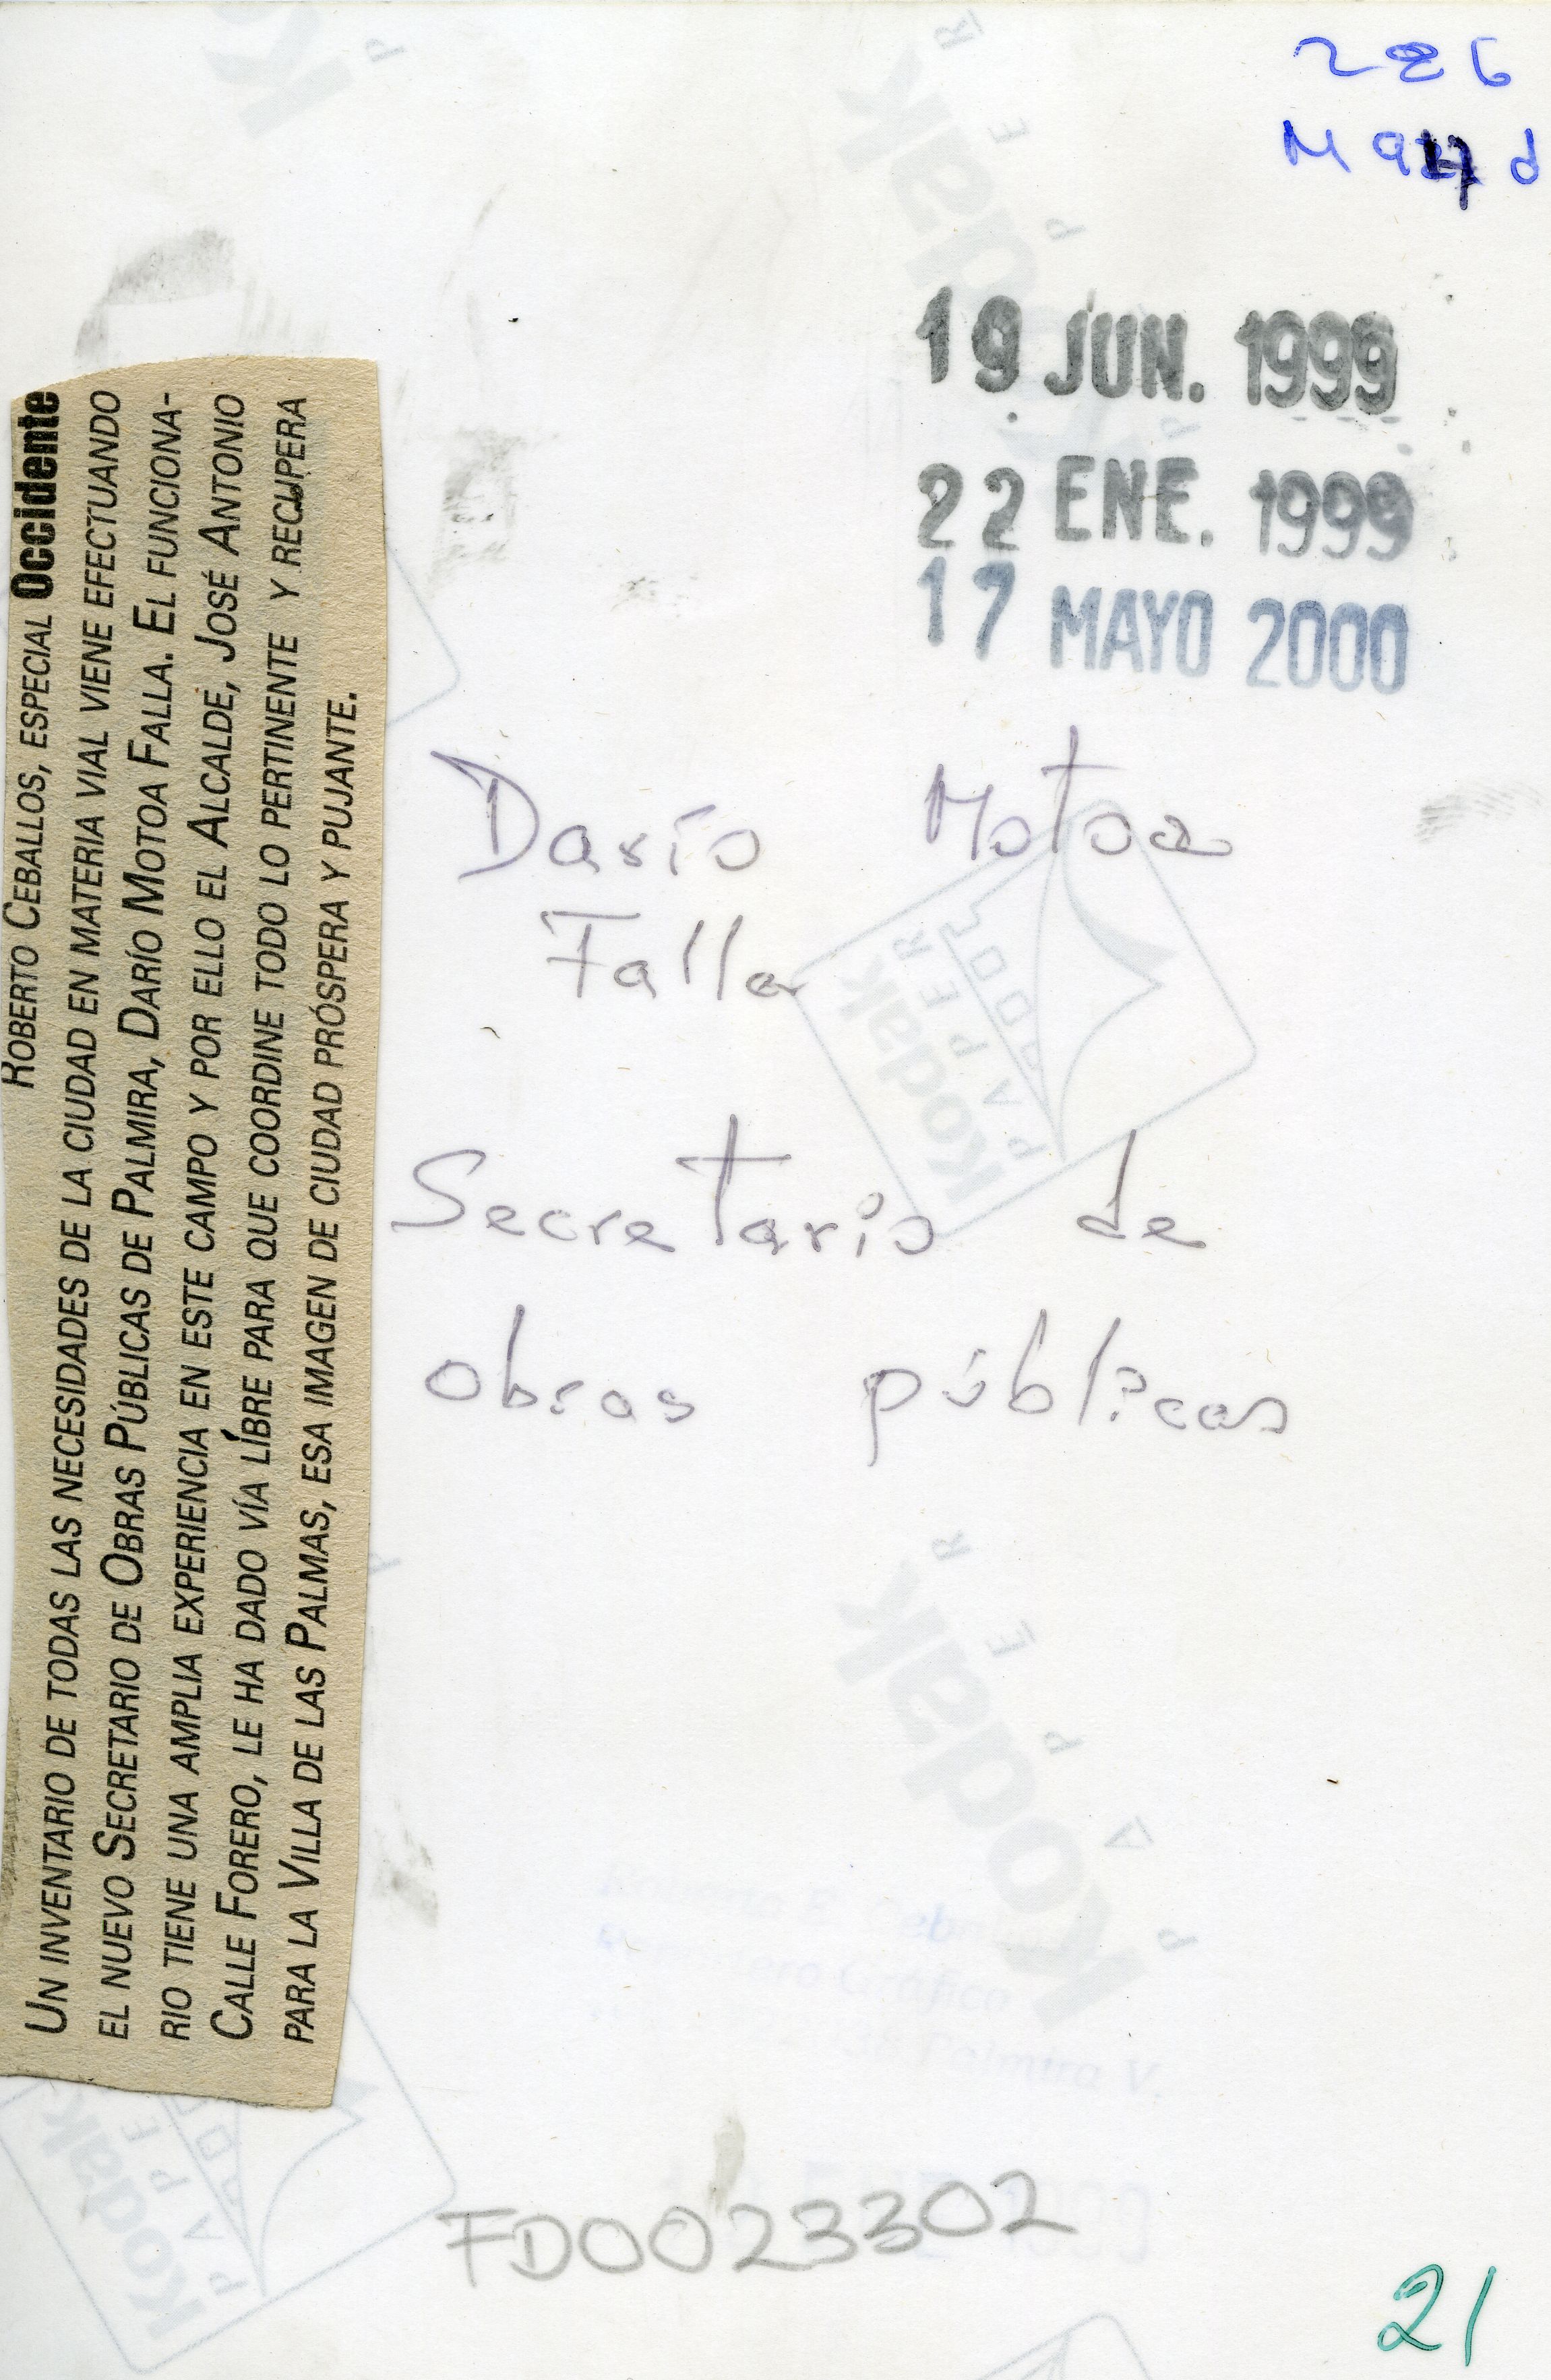 226
19 JUN. 1999
22 ENE. 1999
17 MAYO 2000
ROBERTO CEBALLOS, ESPECIAL Occidente
UN INVENTARIO DE TODAS LAS NECESIDADES DE LA CIUDAD EN MATERIA VIAL VIENE EFECTUANDO
EL NUEVO SECRETARIO DE OBRAS PÚBLICAS DE PALMIRA, DARÍO MOTOA FALLA. EL FUNCIONA-
RIO TIENE UNA AMPLIA EXPERIENCIA EN ESTE CAMPO Y POR ELLO EL ALCALDE, JOSÉ ANTONIO
CALLE FORERO, LE HA DADO VÍA LÍBRE PARA QUE COORDINE TODO LO PERTINENTE Y RECUPERA
PARA LA VILLA DE LAS PALMAS, ESA IMAGEN DE CIUDAD PRÓSPERA Y PUJANTE.
Darío Motoa
Falla
Secretario de
obras públicas
Kodak
PAPER
Kodak
PAPER
Kodak
PAPER
Palmira V.
Kodak
PAPER
FD0023302
21